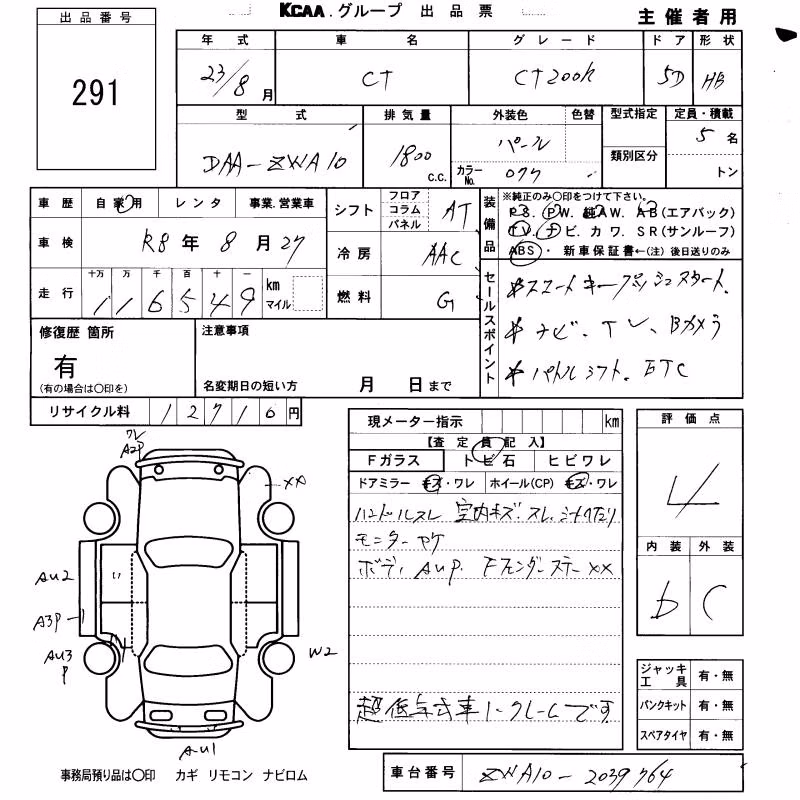 KCAA.グループ 出品票
主催者用
出品番号
291
年式 車名 グレード ドア 形状
23/8月 CT CT200h 5D HB
型式 排気量 外装色 色替 型式指定 定員・積載
DAA-ZWA10 1800 c.c. パール 5名
カラーNo. 077 類別区分 トン
車歴 自家用 レンタ 事業.営業車
シフト フロア コラム パネル AT
装備品
※純正のみ〇印をつけて下さい。
P.S. P.W. 純A.W. A.B(エアバック)
T.V. ナビ. カワ. S.R(サンルーフ)
ABS・ 新車保証書←(注)後日送りのみ
車検 R8年8月27
冷房 AAC
走行 十万 万 千 百 十 一 km マイル
116549
燃料 G
セールスポイント
*スマートキープッシュスタート.
*ナビ、TV、Bカメラ
*パドルシフト、ETC
修復歴 箇所
有
(有の場合は〇印を)
注意事項
名変期日の短い方 月 日まで
リサイクル料 12710円
現メーター指示 km
【査定員記入】
Fガラス トビ石 ヒビワレ
ドアミラー キズ・ワレ ホイール(CP) キズ・ワレ
ハンドルスレ 室内キズ.スレ.シートヘタリ
モニターヤケ
ボディAUP. Fフェンダーステー××
超低年式車ノークレームです
評価点
4
内装 外装
b C
ワレ
A2P
××
AU2
A3P
AU3
P
W2
AU1
ジャッキ工具 有・無
パンクキット 有・無
スペアタイヤ 有・無
事務局預り品は〇印 カギ リモコン ナビロム
車台番号 ZWA10-2039764